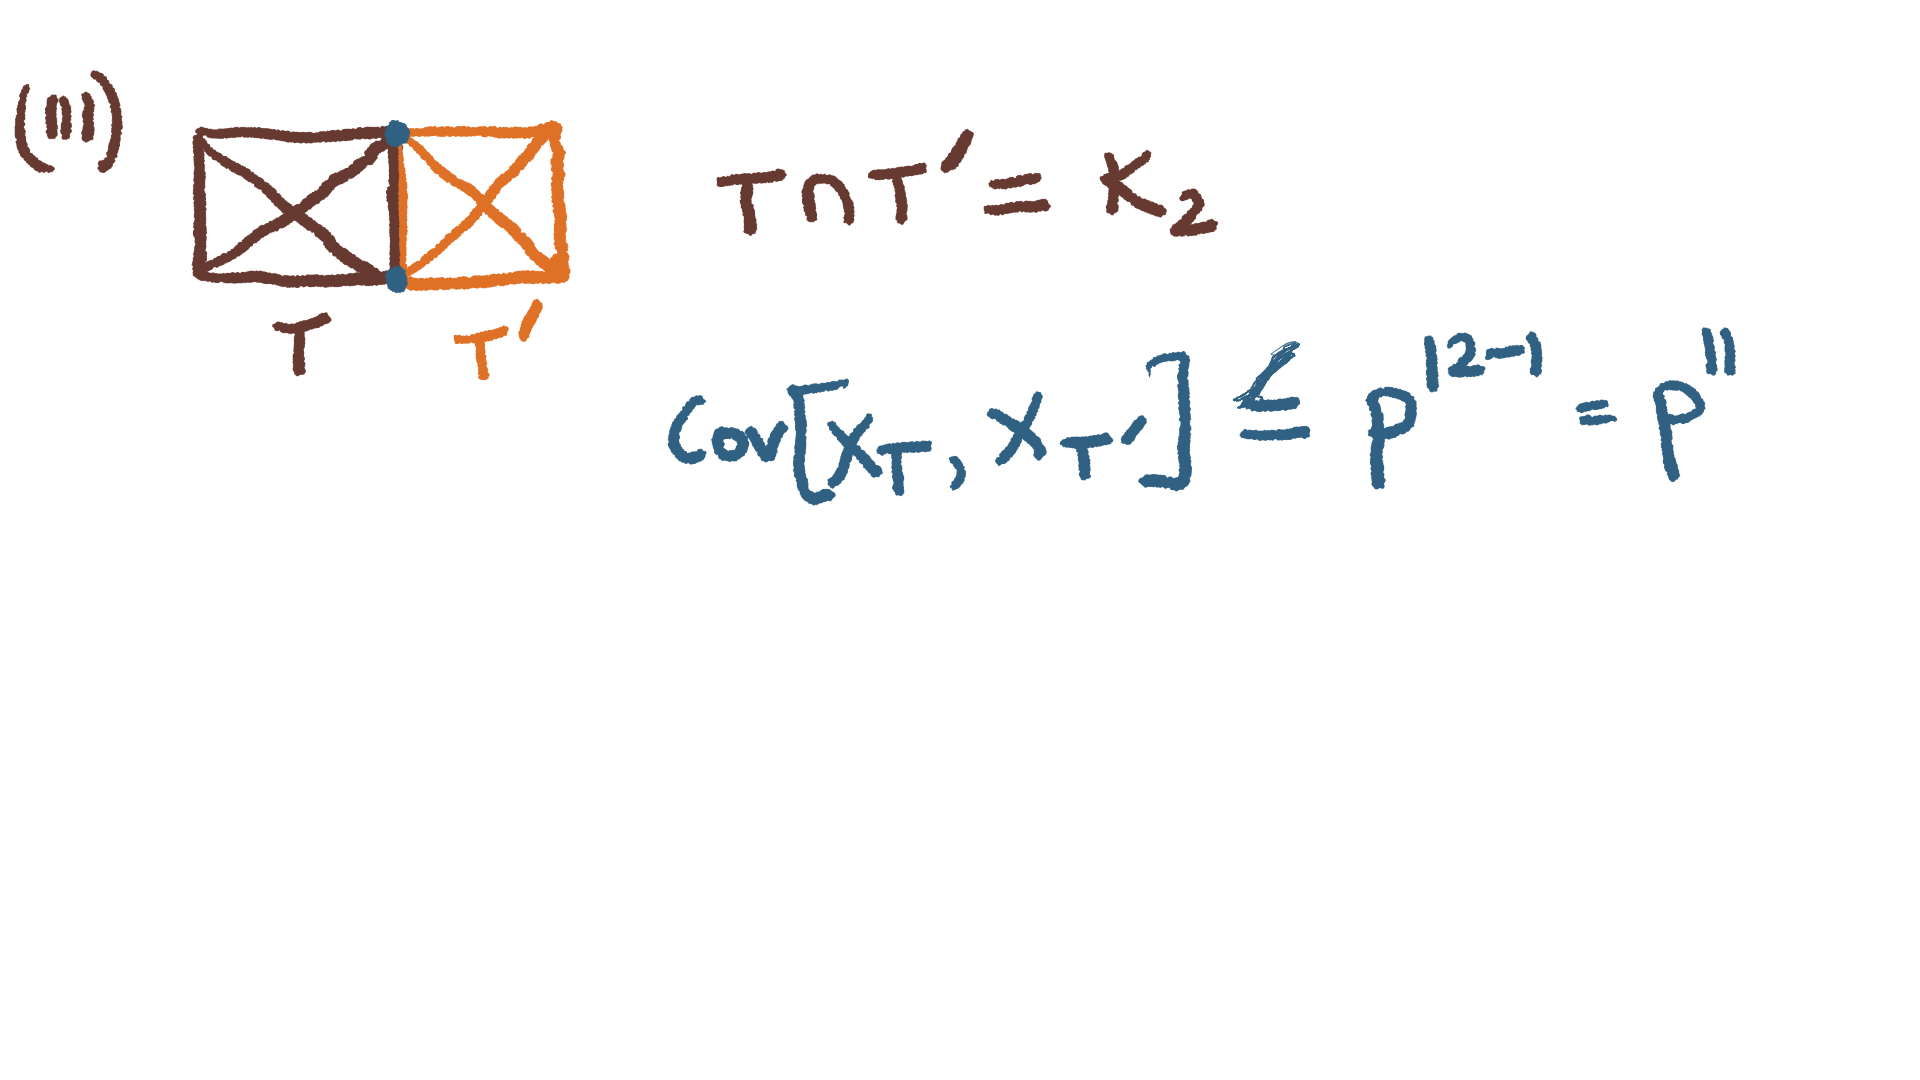 (III)
T ∩ T' = K₂
T T'
Cov[X_T, X_T'] ≤ p^{12-1} = p^{11}